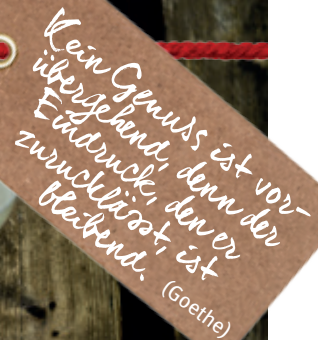 Kein Genuss ist vor-
übergehend, denn der
Eindruck, den er
zurücklässt, ist
bleibend.
(Goethe)